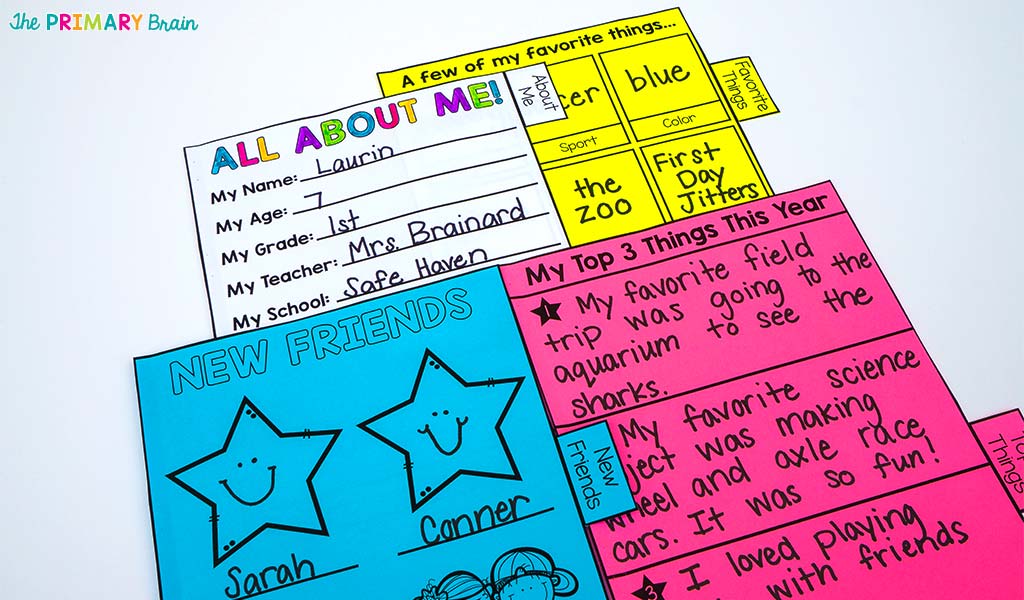 The PRIMARY Brain
A few of my favorite things...
blue
Sport
Color
the
ZOO
First
Day
Jitters
Favorite
Things
About
Me
ALL ABOUT ME!
My Name: Laurin
My Age: 7
My Grade: 1st
My Teacher: Mrs. Brainard
My School: Safe Haven
NEW FRIENDS
Sarah
Conner
New
Friends
My Top 3 Things This Year
1 My favorite field
trip was going to the
aquarium to see the
sharks.
My favorite science
was making
and axle race
cars. It was so fun!
3 I loved playing
with friends
Things